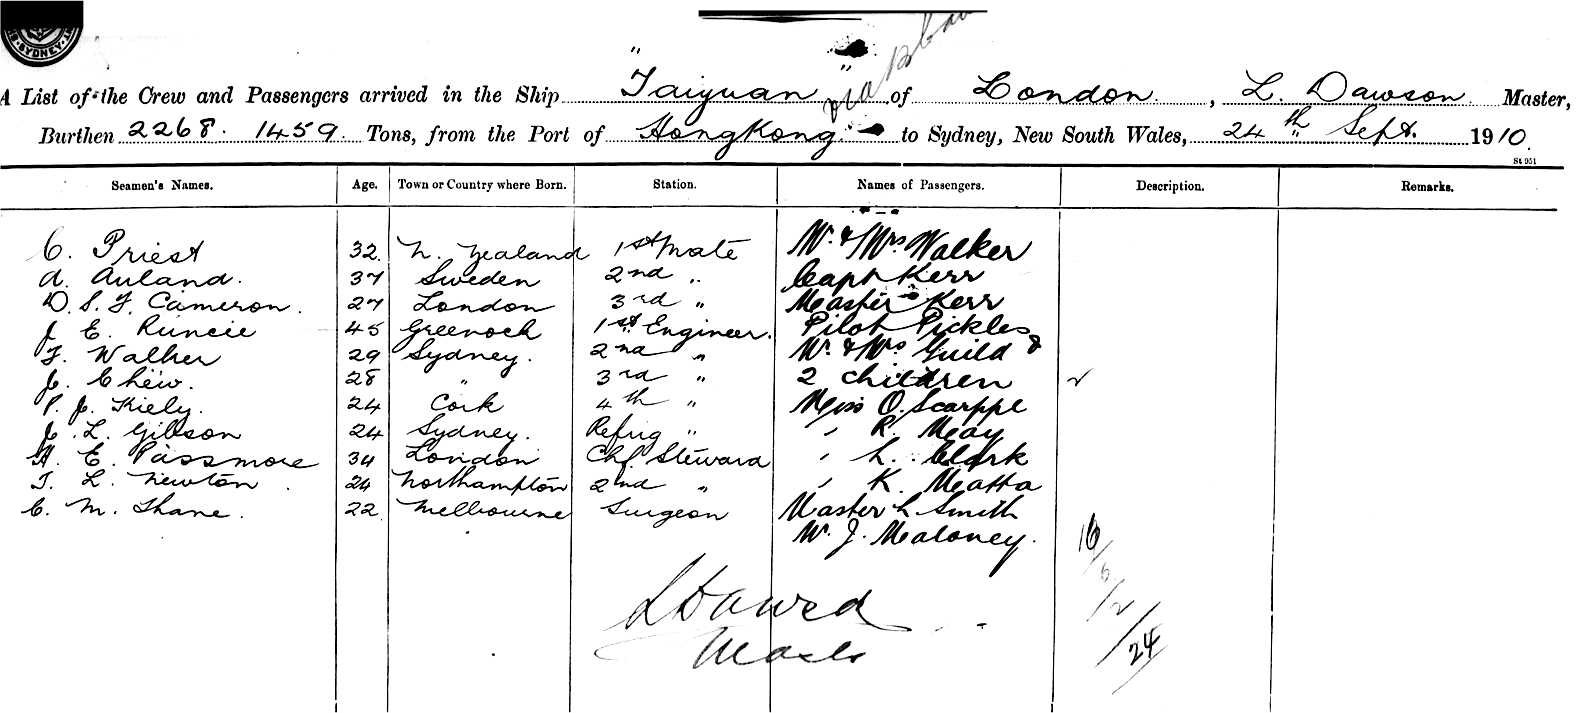 SYDNEY
A List of the Crew and Passengers arrived in the Ship "Taiyuan" via Brisbane of London, L. Dawson Master,
Burthen 2268. 1459. Tons, from the Port of HongKong to Sydney, New South Wales, 24th Sept. 1910.
St 951
Seamen's Names. Age. Town or Country where Born. Station. Names of Passengers. Description. Remarks.
C. Priest 32. N. Zealand 1st Mate Mr. & Mrs Walker
A. Auland. 37 Sweden 2nd " Capt Kerr
D. S. F. Cameron. 27 London 3rd " Master Kerr
J. E. Runcie 45 Greenock 1st Engineer. Pilot Pickles
F. Walker 29 Sydney. 2nd " Mr. & Mrs Guild &
J. Chew. 28 " 3rd " 2 children
P. J. Kiely. 24 Cork 4th " Miss O. Scarppe
J. L. Gibson 24 Sydney. Refrig " " R. May
H. E. Passmore 34 London Chf. Steward " L. Clark
T. L. Newton. 24 Northampton 2nd " " K. Matta
C. M. Shane. 22. Melbourne Surgeon Master L Smith
Mr. J. Maloney.
16
/2
/24
L Dawson
Master